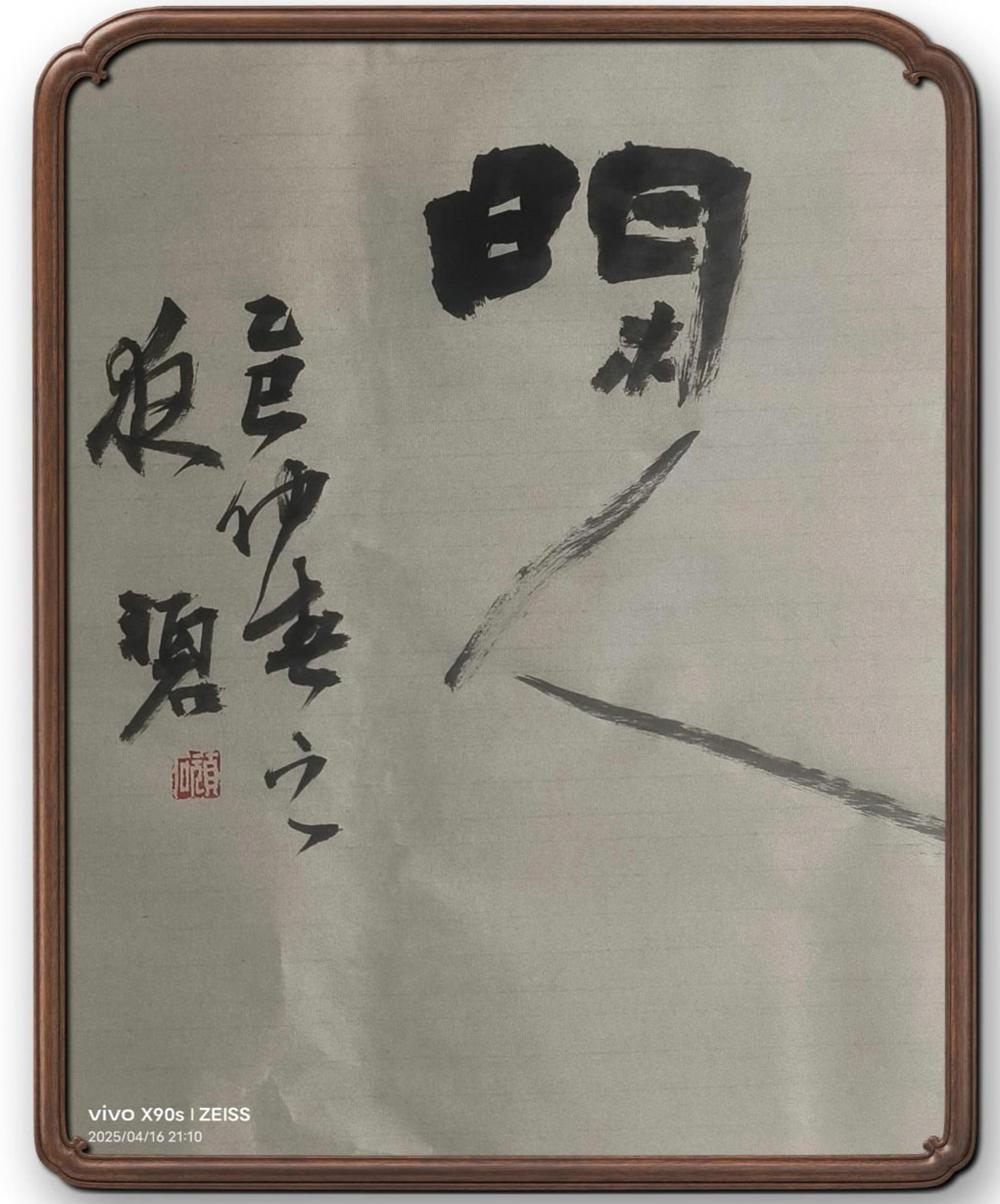 閑人
乙巳仲春之
夜 碧
vivo X90s | ZEISS
2025/04/16 21:10